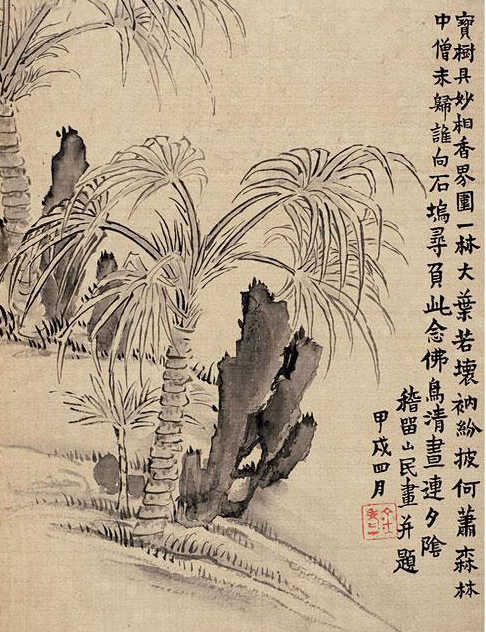 寶樹具妙相香界圍一林大葉若壞衲紛披何蕭森林
中僧未歸誰向石塢尋負此念佛鳥清晝連夕隂
稽留山民畫并題
甲戌四月